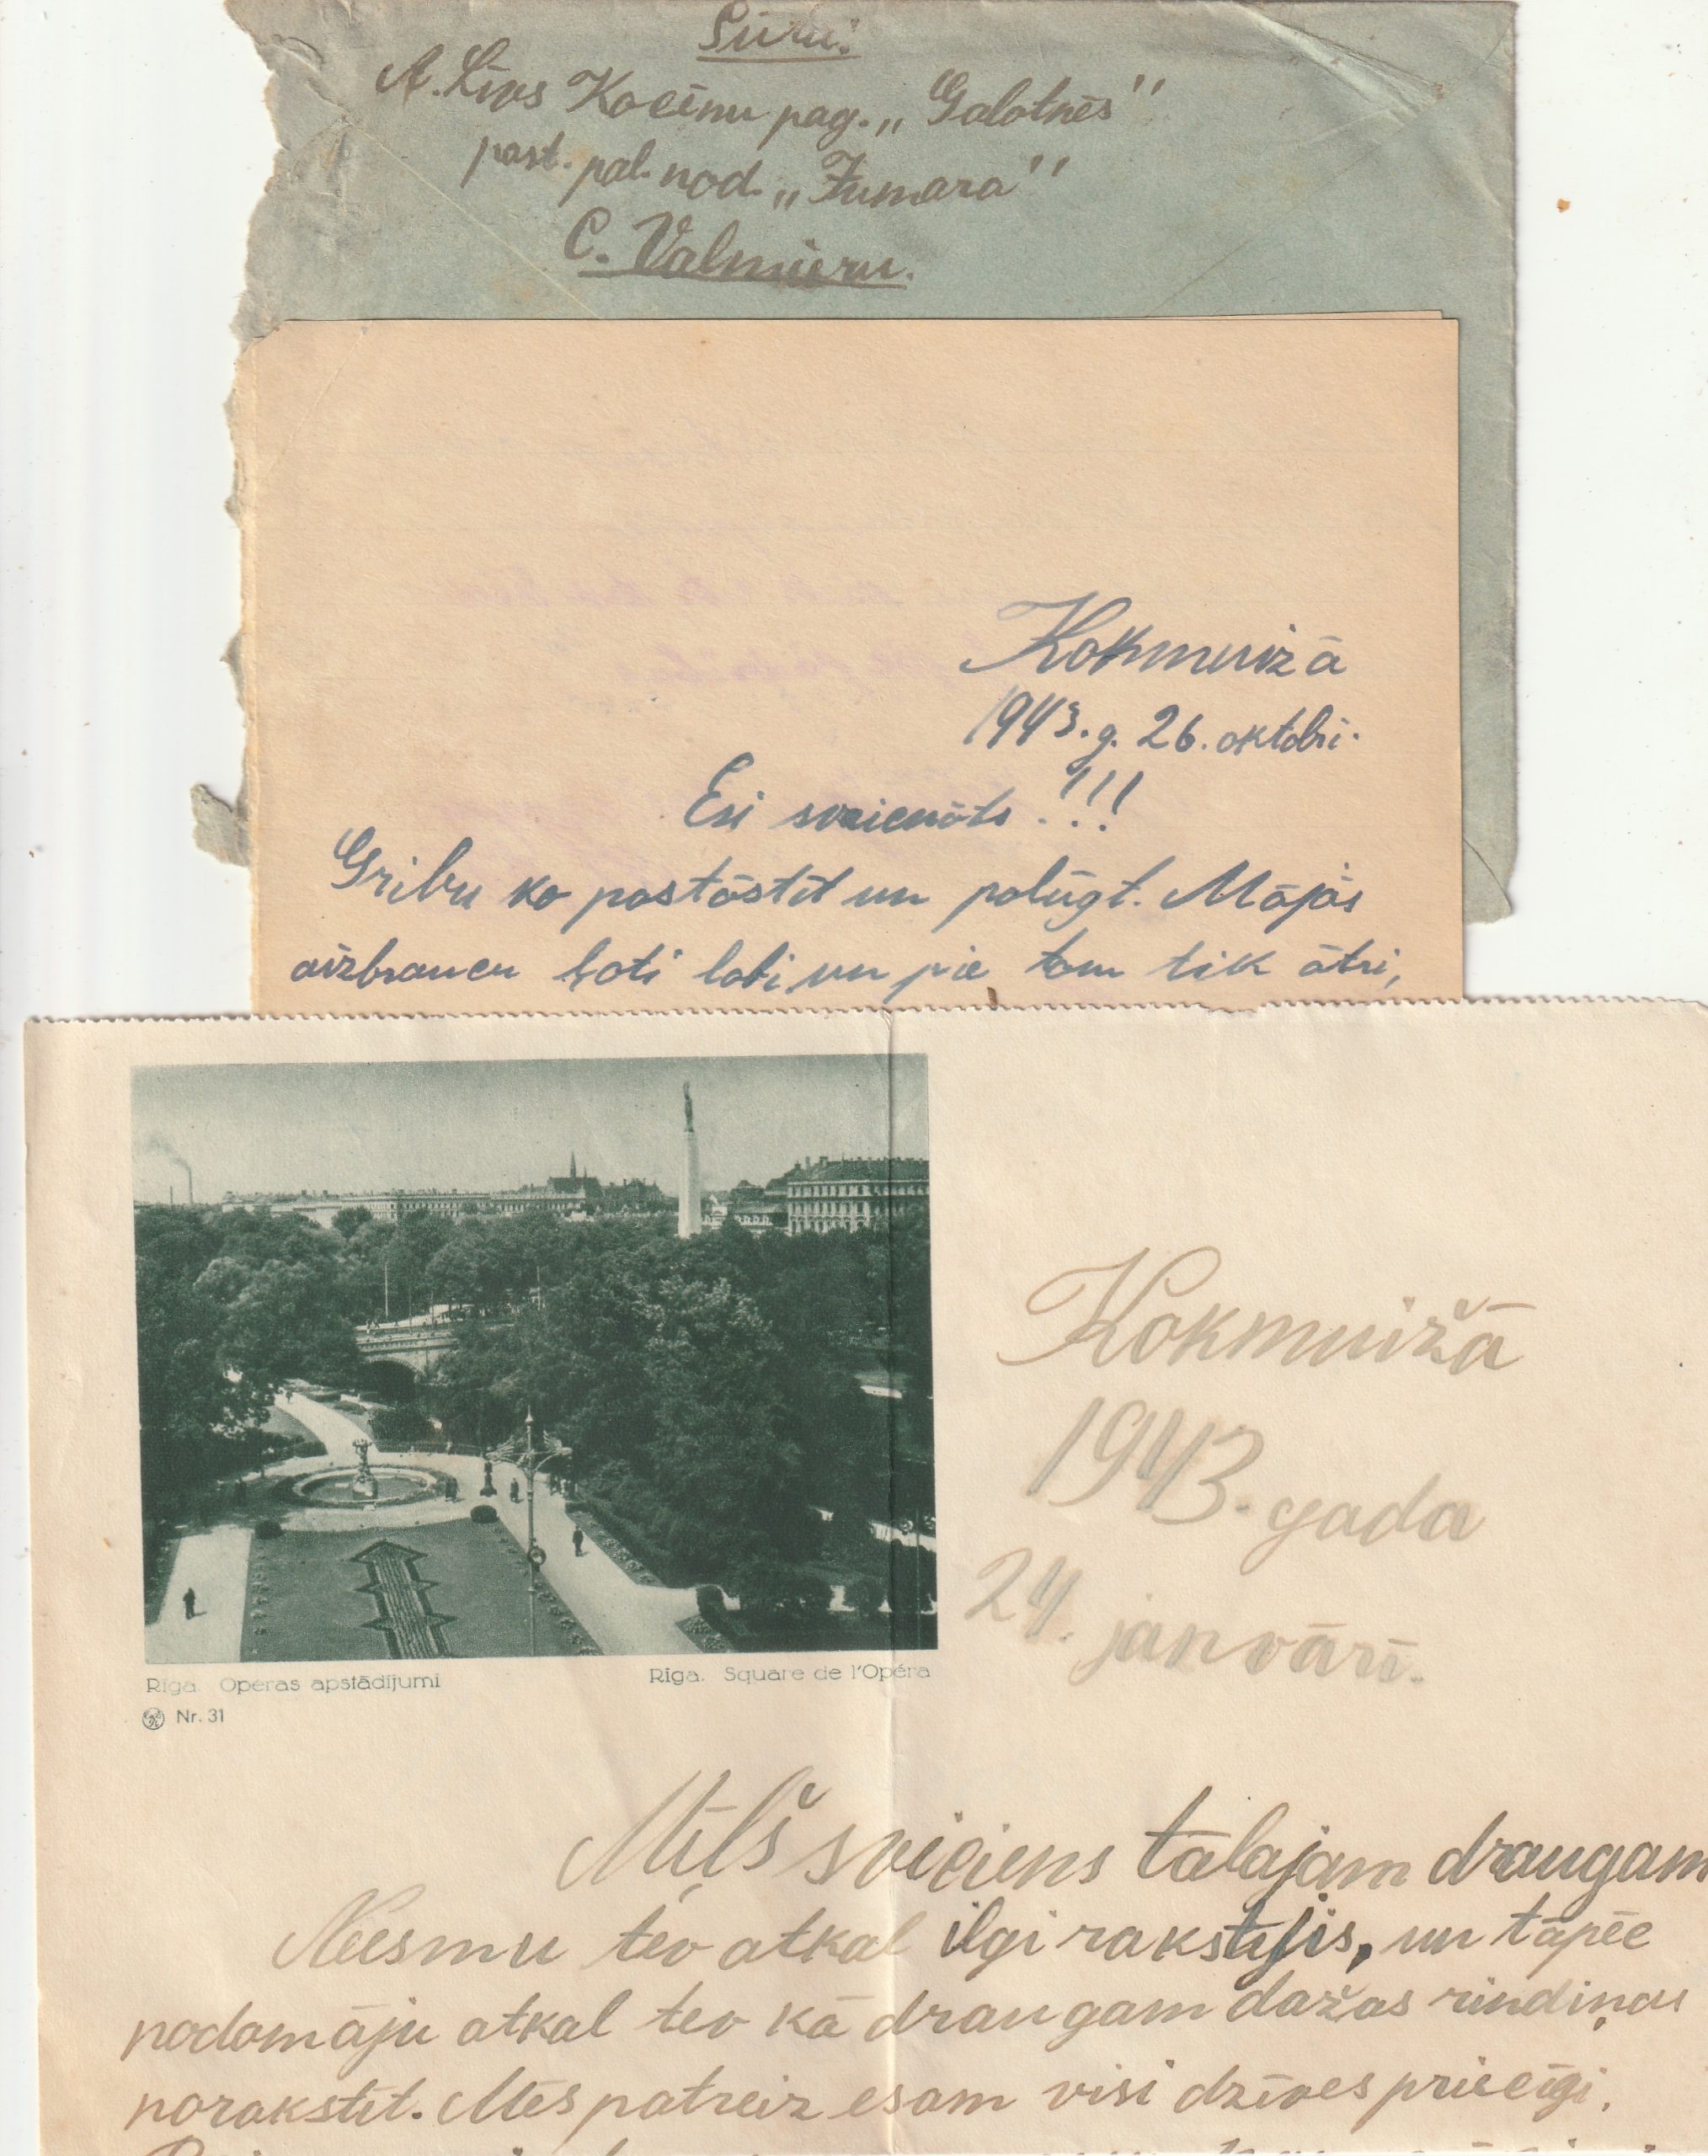 Sūta:
A. Līps Kocēnu pag. „Galotnēs"
past. pal. nod. „Jumara"
C. Valmieru.
Kokmuižā
1943. g. 26. oktobrī.
Esi sveicnāts!!!
Gribu ko pastāstīt un palūgt. Mājās
aizbraucu ļoti labi un pie tam tik ātri,
Kokmuižā
1943. gada
24. janvārī.
Rīga. Operas apstādījumi
Rīga. Square de l'Opéra
Nr. 31
Mīļš sveiciens tālajam draugam
Neesmu tev atkal ilgi rakstījis, un tāpēc
nodomāju atkal tev kā draugam dažas rindiņas
norakstīt. Mēs patreiz esam visi dzīvespriecīgi.